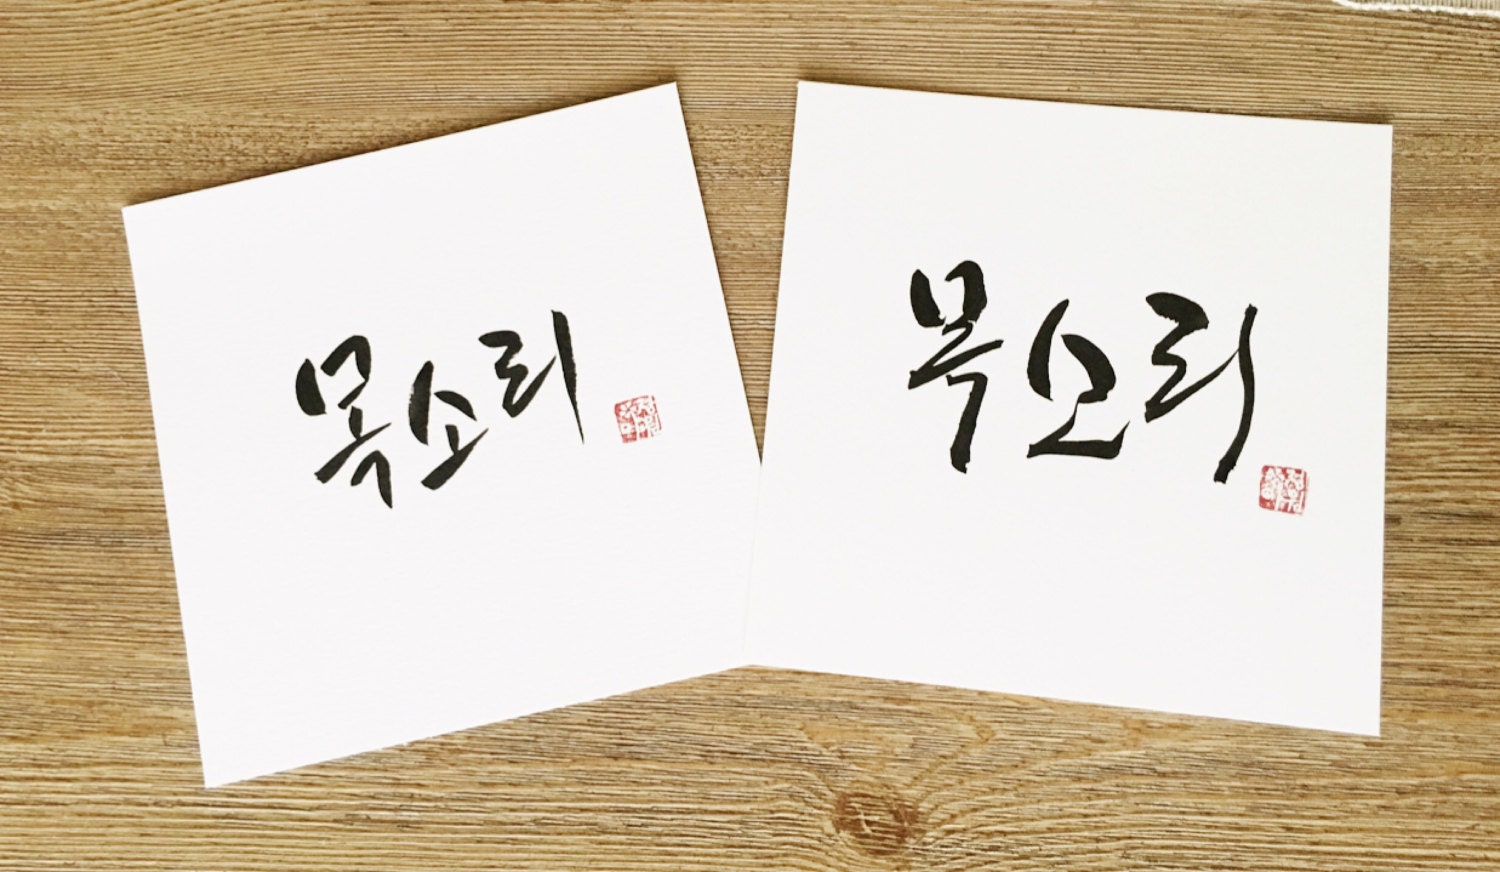 목소리
목소리